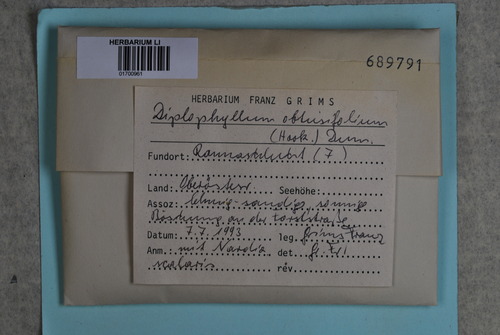 HERBARIUM LI
01700961
689791
HERBARIUM FRANZ GRIMS
Diplophyllum obtusifolium
(Hook.) Dum.
Fundort: Rannaschlucht (7)
Land: Oberösterr. Seehöhe:
Assoz: lehmig-sandige, sonnige
Böschung an der Forststraße
Datum: 7.7.1993 leg. Grims Franz
Anm.: mit Nardia det. Gr. Fr.
scalaris rév.